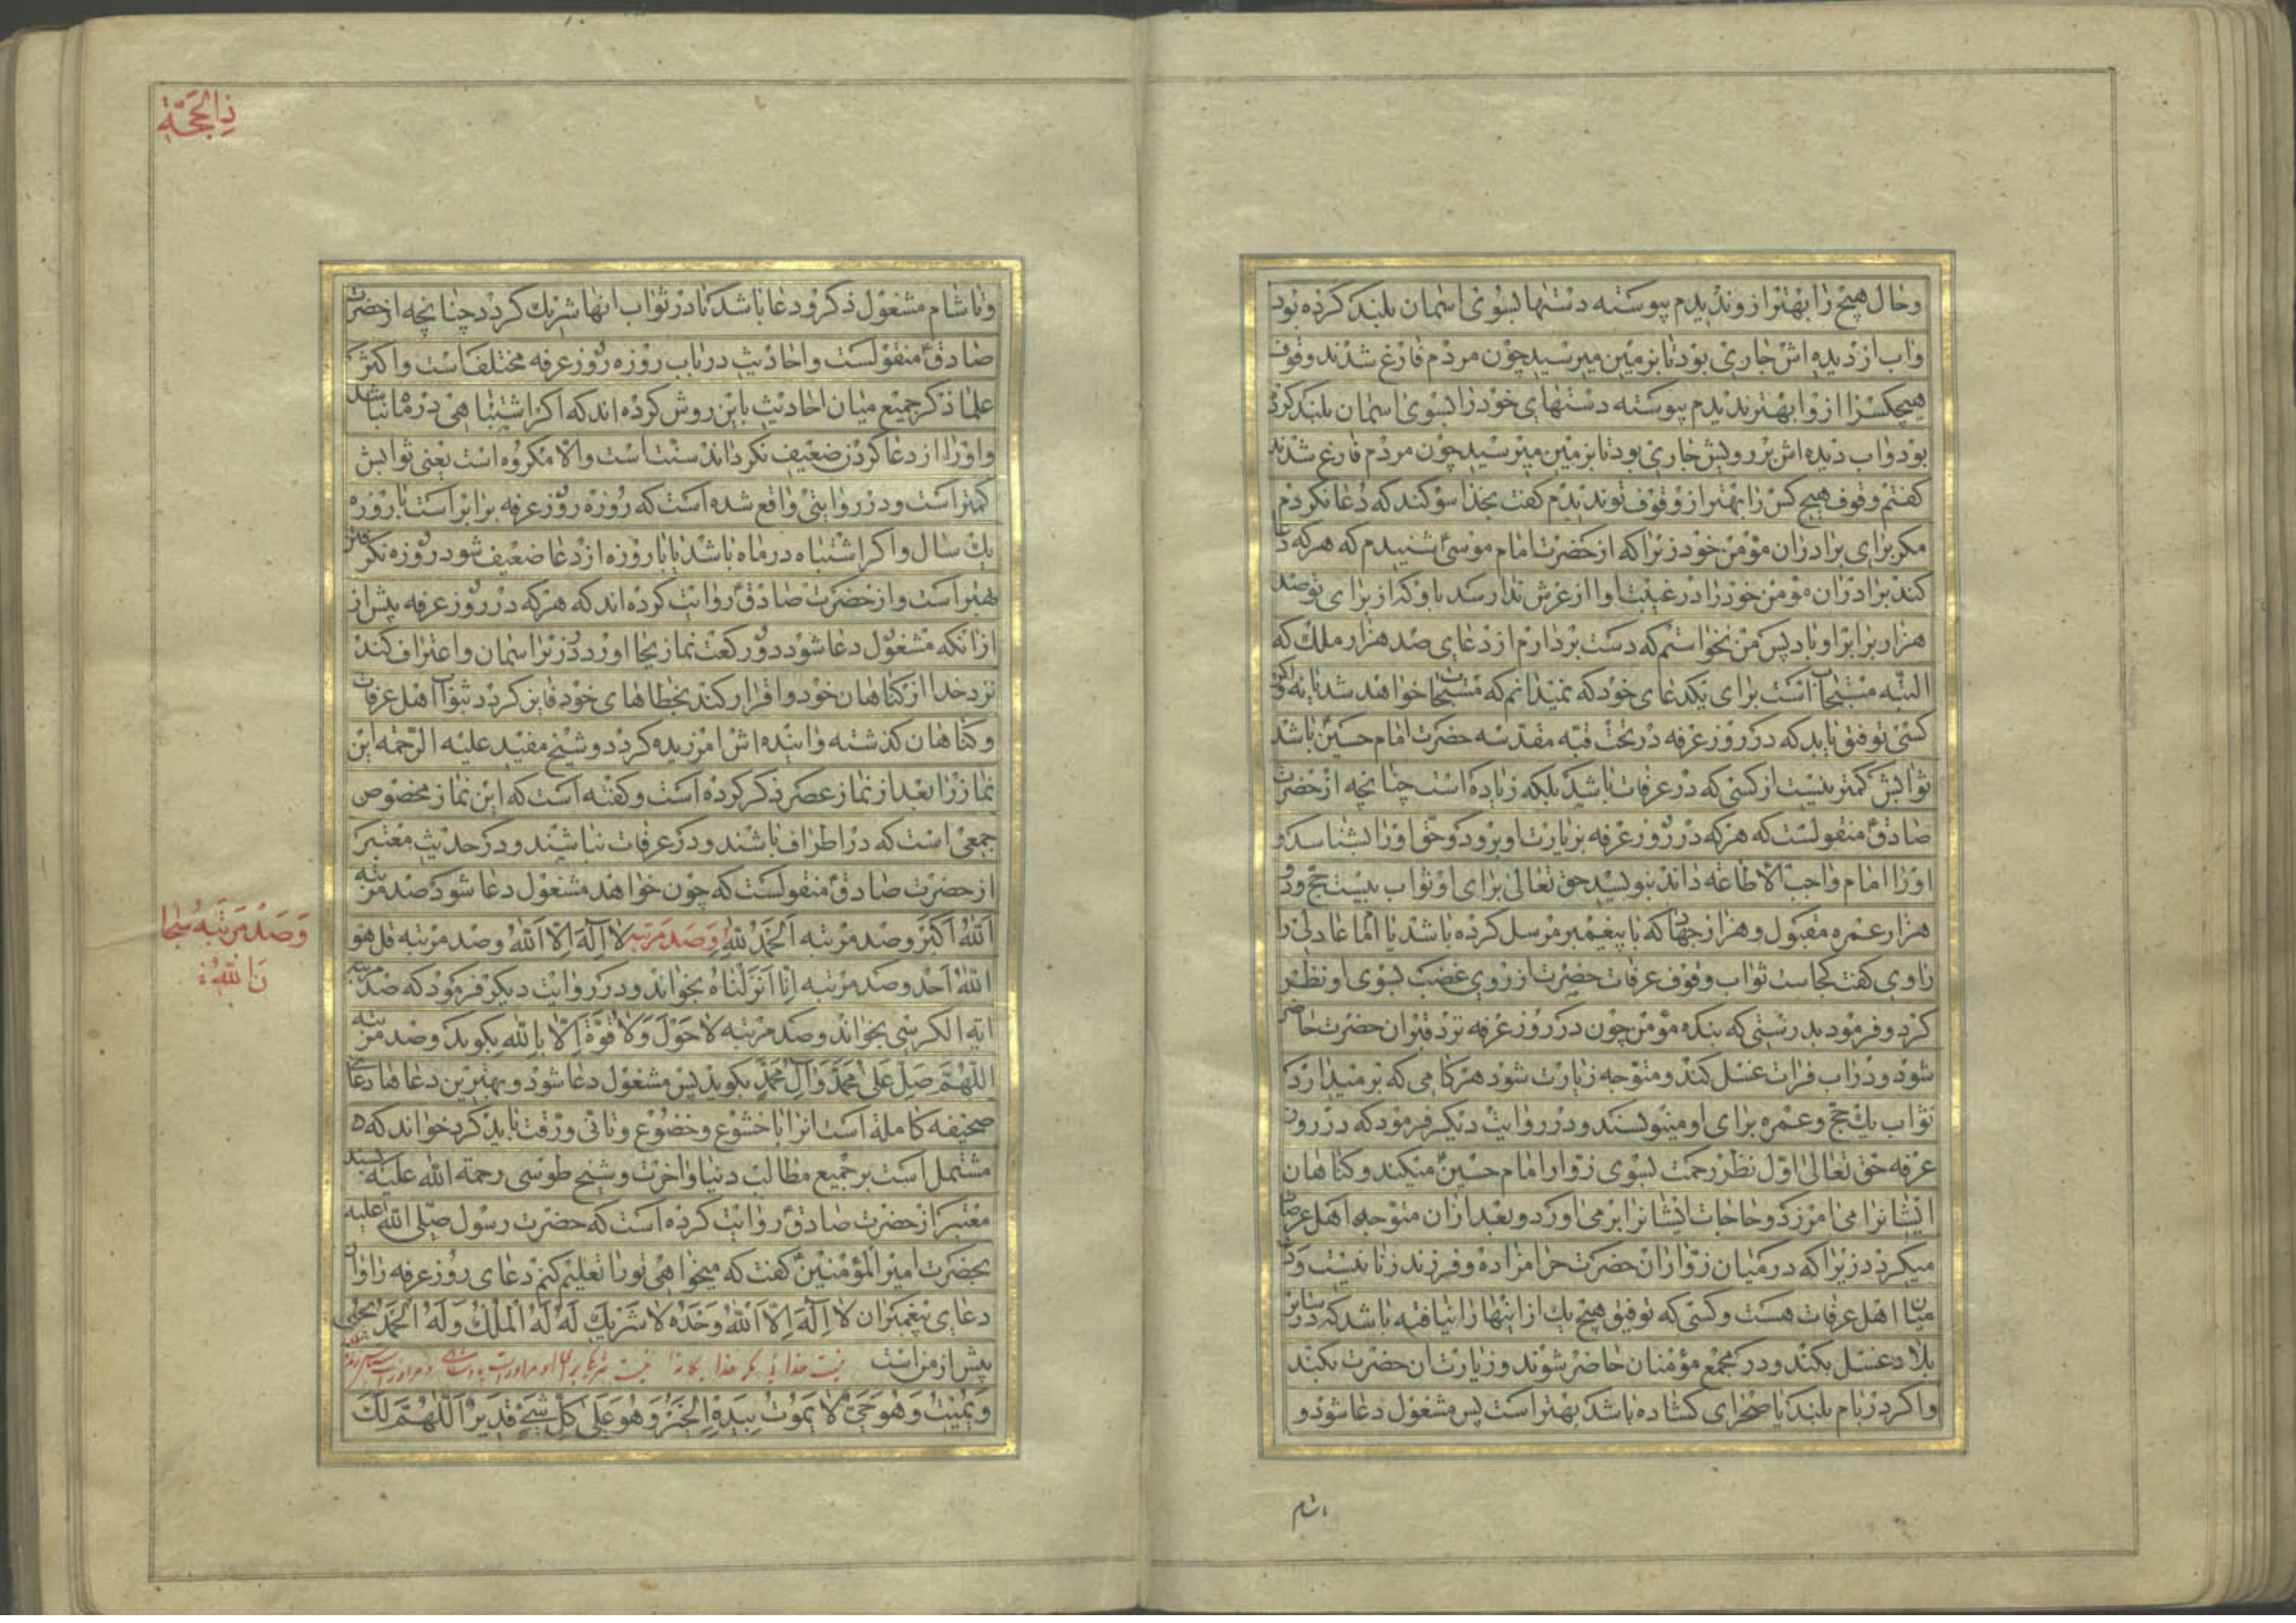 وحال هیچ را بهتر از و ندیدم پیوسته دستها بسوی اسمان بلند کرده بود
واب از دیده اش جاری بود تا بزمین میرسید چون مردم فارغ شدند وقوف
هیچکس را از وا بهتر ندیدم پیوسته دستهای خود را بسوی اسمان بلند کرد
بود واب دیده اش بر رویش جاری بود تا بزمین میرسید چون مردم فارغ شدند
کفتم وقوف هیچ کس را بهتر از وقوف تو ندیدم کفت بخدا سوکند که دعا نکردم
مکر برای برادران مؤمن خود زیرا که از حضرت امام موسیٰ شنیدم که هرکه دعا
کند برادران مؤمن خود را در غیبت او از عرش ندا رسد باو که از برای تو صد
هزار برابر او باد پس من نخواستم که دست بردارم از دعای صد هزار ملک که
البته مستجاب است برای یکدعای خود که نمیدانم که مستجاب خواهد شد یا نه واکر
کسی توفیق یابد که در روز عرفه در تحت قبه مقدسه حضرت امام حسین باشد
ثوابش کمتر نیست از کسی که در عرفات باشد بلکه زیاده است چنانچه از حضرت
صادق منقولست که هرکه در روز عرفه بزیارت او برود و حق او را بشناسد و
او را امام واجب الاطاعه داند بنویسد حق تعالی برای او ثواب بیست حج و دو
هزار عمره مقبول و هزار جهاد که با پیغمبر مرسل کرده باشد یا امام عادلی را
راوی کفت کجاست ثواب وقوف عرفات حضرت از روی غضب بسوی او نظر
کرد و فرمود بدرستی که بنده مؤمن چون در روز عرفه نزد قبر ان حضرت حاضر
شود و در اب فرات غسل کند و متوجه زیارت شود هر کامی که بر میدارد
ثواب یک حج و عمره برای او مینویسند و در روایت دیکر فرمود که در روز
عرفه حق تعالی اول نظر رحمت بسوی زوار امام حسین میکند و کناهان
ایشانرا می امرزد و حاجات ایشانرا بر می اورد و بعد از ان متوجه اهل عرفات
میکردد زیرا که در میان زواران حضرت حرامزاده و فرزند زنا نیست و در
میان اهل عرفات هست و کسی که توفیق هیچ یک از اینها را نیافته باشد که در سایر
بلاد غسل بکند و در مجمع مؤمنان حاضر شوند و زیارت ان حضرت بکند
واکر در بام بلند یا صحرای کشاده باشد بهتر است پس مشغول دعا شود و
ذالحجة
وتا شام مشغول ذکر و دعا باشد تا در ثواب انها شریک کردد چنانچه از حضرت
صادق منقولست و احادیث در باب روزه روز عرفه مختلف است و اکثر
علما ذکر جمیع میان احادیث باین روش کرده اند که اکر اشتباهی در ماه نباشد
و او را از دعا کردن ضعیف نکرداند سنت است والا مکروه است یعنی ثوابش
کمتر است و در روایتی واقع شده است که روزه روز عرفه برابر است با روزه
یک سال و اکر اشتباه در ماه باشد یا با روزه از دعا ضعیف شود روزه نکرفتن
بهتر است و از حضرت صادق روایت کرده اند که هرکه در روز عرفه پیش از
از انکه مشغول دعا شود دو رکعت نماز بجا اورد در زیر اسمان و اعتراف کند
نزد خدا از کناهان خود و اقرار کند بخطاهای خود فایز کردد بثواب اهل عرفات
و کناهان کذشته و اینده اش امرزیده کردد و شیخ مفید علیه الرحمه این
نماز را بعد از نماز عصر ذکر کرده است و کفته است که این نماز مخصوص
جمعی است که در اطراف باشند و در عرفات نباشند و در حدیث معتبر
از حضرت صادق منقولست که چون خواهد مشغول دعا شود صد مرتبه
الله اکبر و صد مرتبه الحمد لله و صد مرتبه لا اله الا الله و صد مرتبه قل هو
وَصَد مَرتَبَه سُبحا
نَ اللّٰهِ
الله احد و صد مرتبه انا انزلناه بخواند و در روایت دیکر فرمود که صد مرتبه
ایه الکرسی بخواند و صد مرتبه لا حول ولا قوة الا بالله بکوید و صد مرتبه
اللهم صل علی محمد وال محمد بکوید پس مشغول دعا شود و بهترین دعاها دعای
صحیفه کامله است انرا با خشوع و خضوع و تانی و رقت باید کرد خواند که
مشتمل است بر جمیع مطالب دنیا و اخرت و شیخ طوسی رحمة الله علیه بسند
معتبر از حضرت صادق روایت کرده است که حضرت رسول صلی الله علیه
بحضرت امیر المؤمنین کفت که میخواهی تو را تعلیم کنم دعای روز عرفه را و ان
دعای پیغمبران لا اله الا الله وحده لا شریک له له الملک وله الحمد یحیی
پیش از من است نیست خدائی مکر خدا
ویمیت وهو حی لا یموت بیده الخیر وهو علی کل شیء قدیر اللهم لک